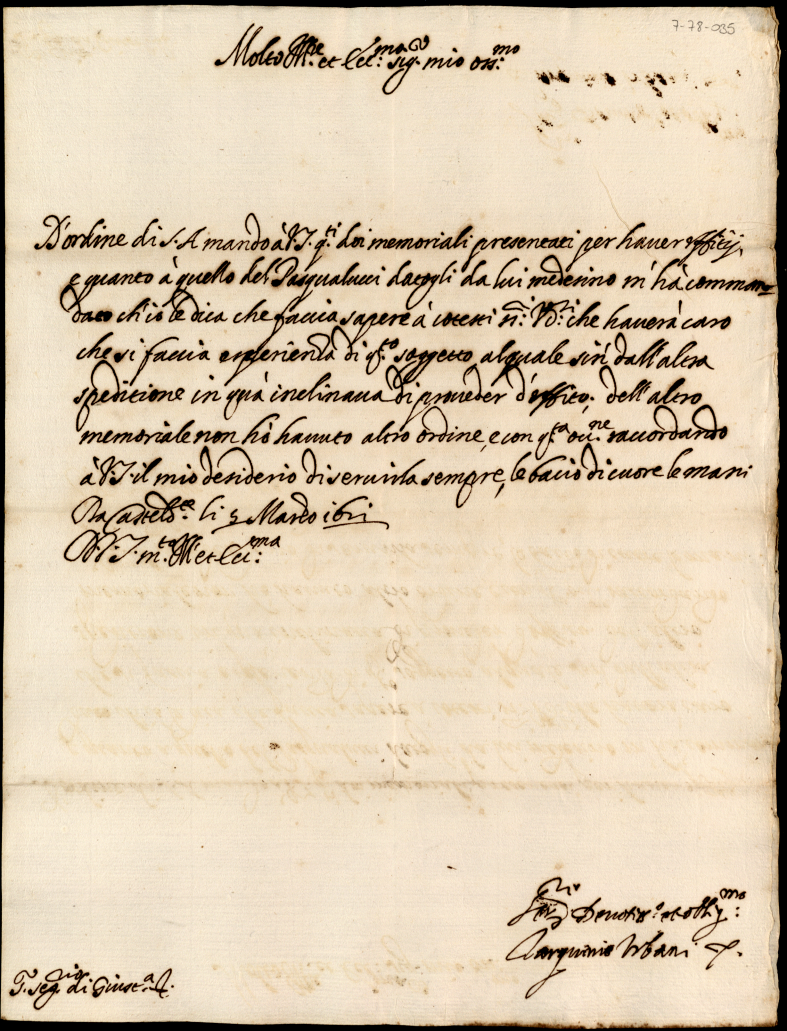 7-78-035
Molto Ill.re et Ecc.mo sig.r mio oss.mo
D'ordine di S.A mando à V.S. q.ti doi memoriali presentati per hauer officij,
e quanto à quello del Pasqualucci datogli da lui medesimo m'hà comman=
dato ch'io le dica che faccia sapere à cotesti ss.ri Vd.ri che hauerà caro
che si faccia esperienza di q.to soggetto, al quale sin dall'altra
speditione in quà inclinaua di proueder d'offitio. dell'altro
memoriale non hò hauuto altro ordine, e con q.ta occ.ne raccordando
à V.S. il mio desiderio di seruirla sempre, le bacio di cuore le mani
Da Casteld.te li 5 Marzo 1621
D.V.S. m.to Ill.re et Ecc.ma
Ser.re Deuotiss.o et obblig.mo
Tarquinio Urbani
S. seg.rio di Giust.a